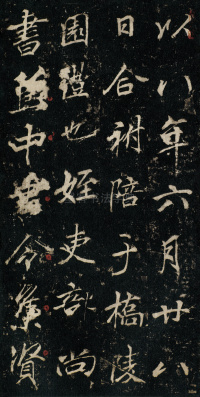 以八年六月廿八
日合祔陪于橋陵
園禮也姪吏部尚
書兼中書令集賢